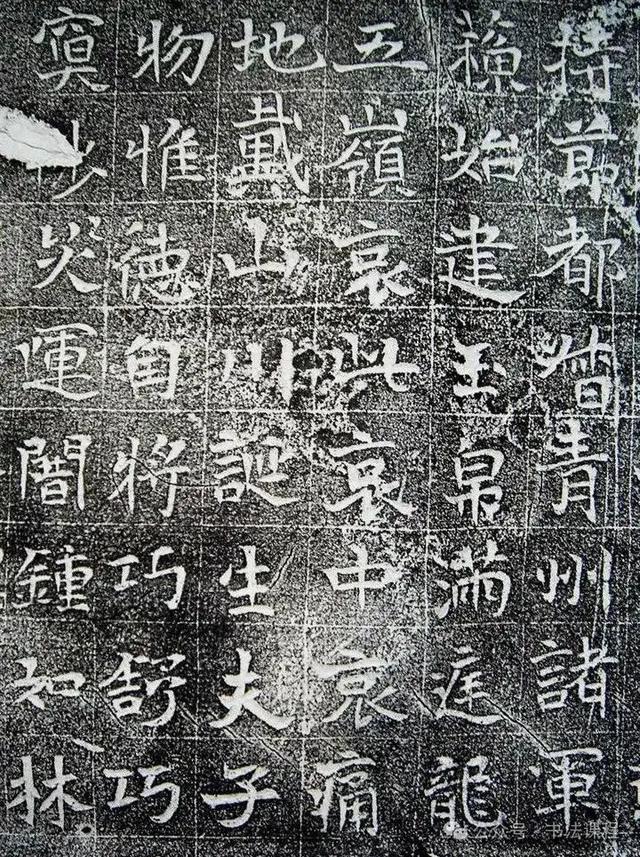 持節都督青州諸軍
蘓始建玉帛滿庭龍
五嶺哀此哀中哀痛
地戴山川誕生夫子
物惟德自將巧舒巧
冥炎運闇鍾如林
公众号 · 书法课程